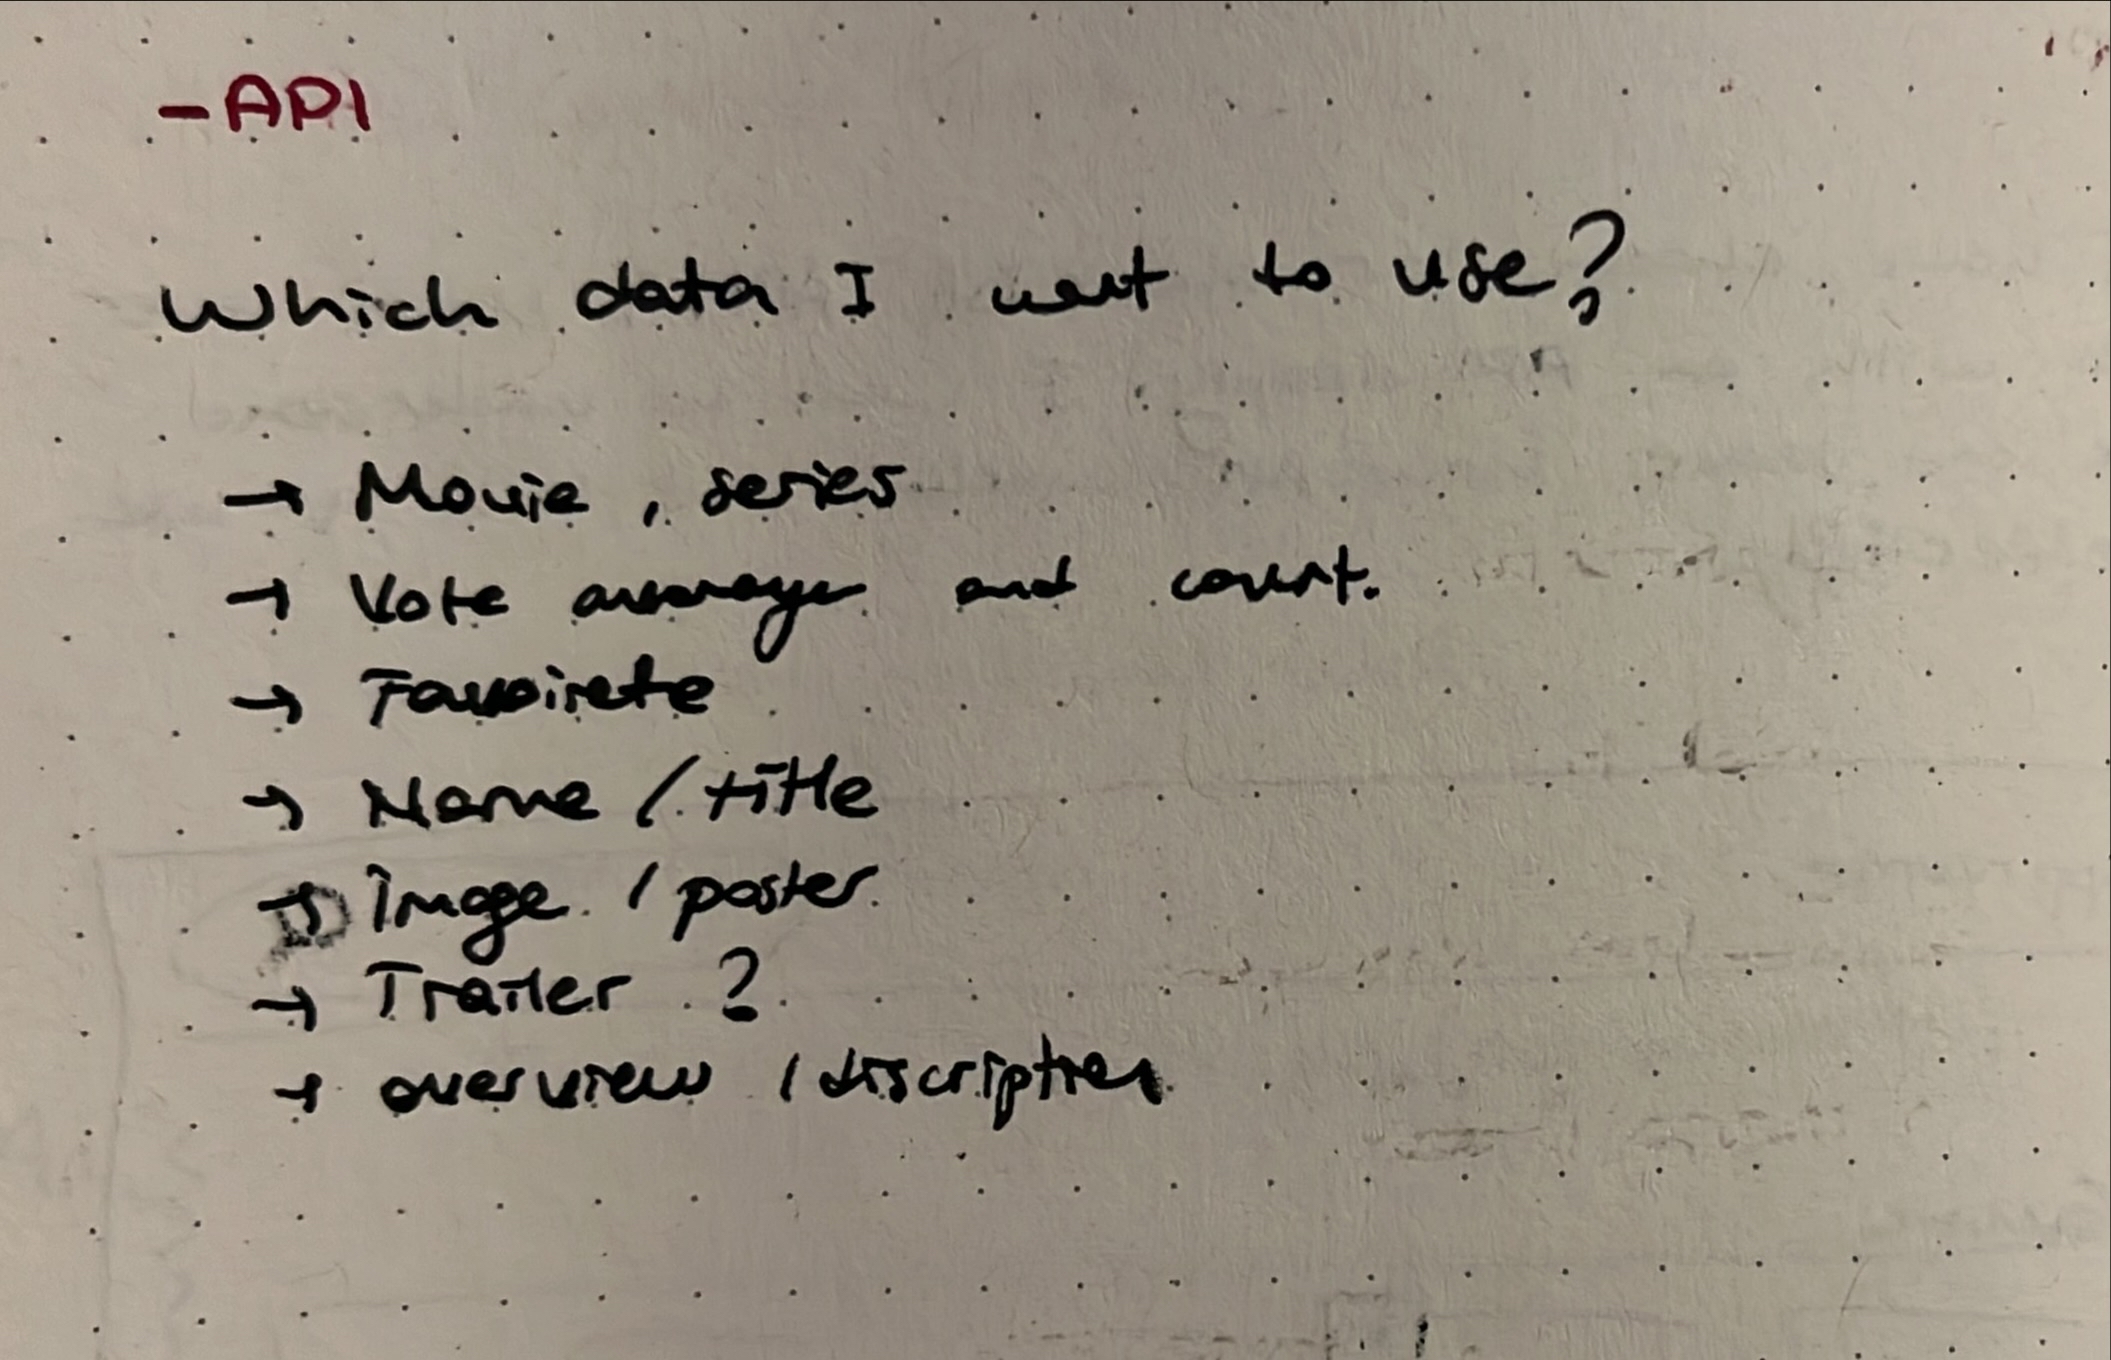 - API
Which data I want to use?
→ Movie, series
→ Vote average and count.
→ Favoirete
→ Name / title
→ Image / poster
→ Trailer ?
→ overview / discription